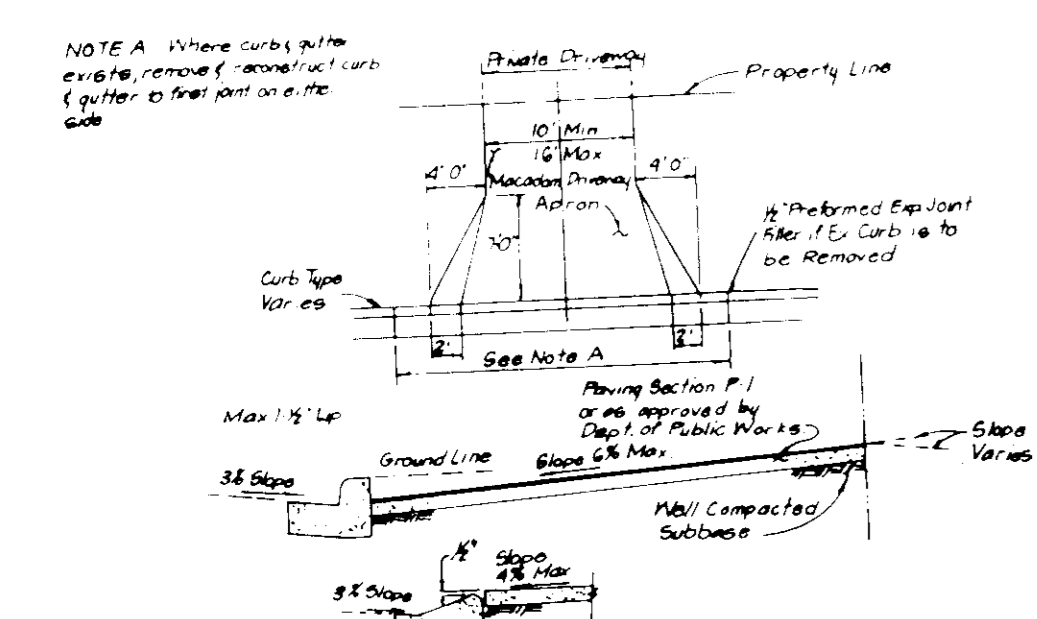 NOTE A Where curb & gutter
exists, remove & reconstruct curb
& gutter to first joint on eithe
side
Private Driveway
Property Line
10' Min
16' Max
4' 0"
4' 0"
Macadam Driveway
Apron
½" Preformed Exp Joint
Filler if Ex Curb is to
be Removed
Curb Type
Varies
2'
2'
See Note A
Paving Section P-1
or as approved by
Dept. of Public Works
Max 1-½" Lip
Ground Line
Slope 6% Max
Slope
Varies
3% Slope
Well Compacted
Subbase
½"
Slope
4% Max
3% Slope